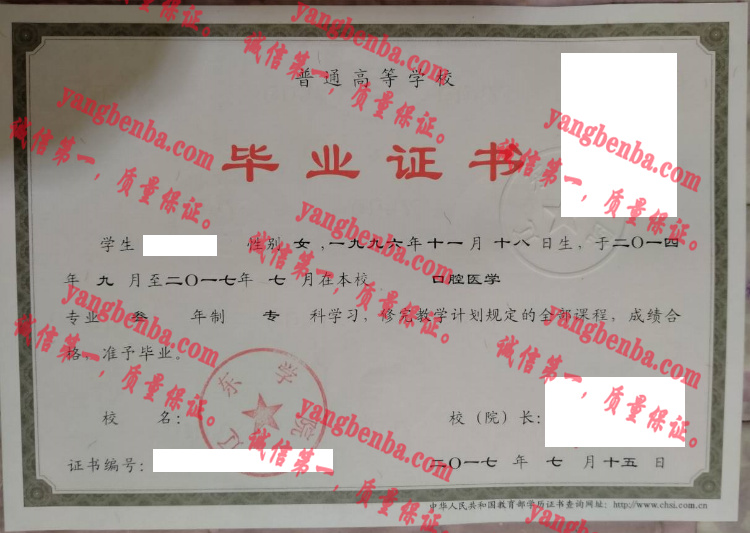 普通高等学校
毕业证书
学生 性别 女 ,一九九六年十一月 十八 日生，于二〇一四
年 九 月至二〇一七年 七 月在本校 口腔医学
专业 叁 年制 专 科学习，修完教学计划规定的全部课程，成绩合
格，准予毕业。
校 名： 校（院）长：
证书编号： 二〇一七 年 七 月 十五 日
辽东学院
中华人民共和国教育部学历证书查询网址：http://www.chsi.com.cn
yangbenba.com
诚信第一，质量保证。
yangbenba.com
诚信第一，质量保证。
yangbenba.com
诚信第一，质量保证。
yangbenba.com
诚信第一，质量保证。
yangbenba.com
诚信第一，质量保证。
yangbenba.com
诚信第一，质量保证。
yangbenba.com
诚信第一，质量保证。
yangbenba.com
诚信第一，质量保证。
yangbenba.com
yangbenba.com